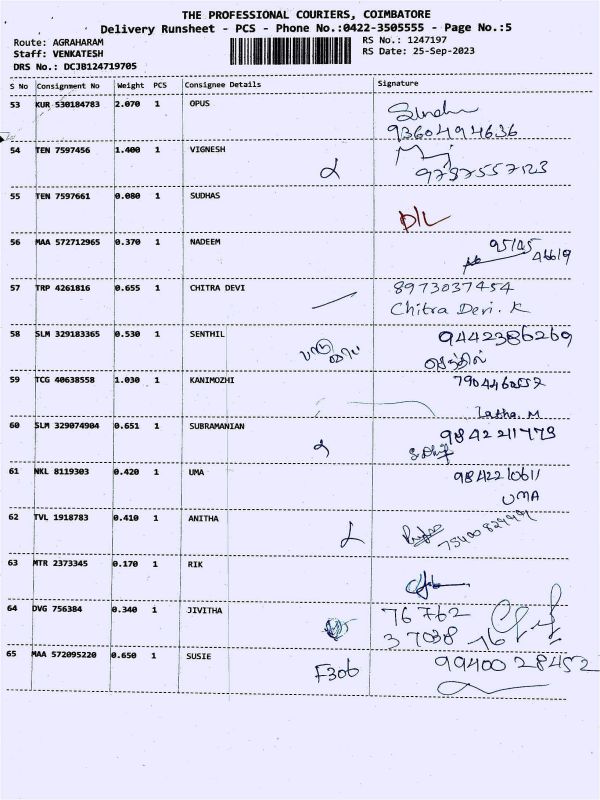 THE PROFESSIONAL COURIERS, COIMBATORE
Delivery Runsheet - PCS - Phone No.:0422-3505555 - Page No.:5
Route: AGRAHARAM RS No.: 1247197
Staff: VENKATESH RS Date: 25-Sep-2023
DRS No.: DCJB124719705
S No Consignment No Weight PCS Consignee Details Signature
53 KUR 530184783 2.070 1 OPUS
9360494636
54 TEN 7597456 1.400 1 VIGNESH
9737557123
55 TEN 7597661 0.080 1 SUDHAS
D/L
56 MAA 572712965 0.370 1 NADEEM
57 TRP 4261816 0.655 1 CHITRA DEVI 8973037454
Chitra Devi. K
58 SLM 329183365 0.530 1 SENTHIL 9442386269
செந்தில்
59 TCG 40638558 1.030 1 KANIMOZHI
Latha. M
60 SLM 329074904 0.651 1 SUBRAMANIAN 9842211773
61 NKL 8119303 0.420 1 UMA 9842210611
UMA
62 TVL 1918783 0.410 1 ANITHA
63 MTR 2373345 0.170 1 RIK
64 DVG 756384 0.340 1 JIVITHA 76762
37038 76
65 MAA 572095220 0.650 1 SUSIE 9940028452
F306